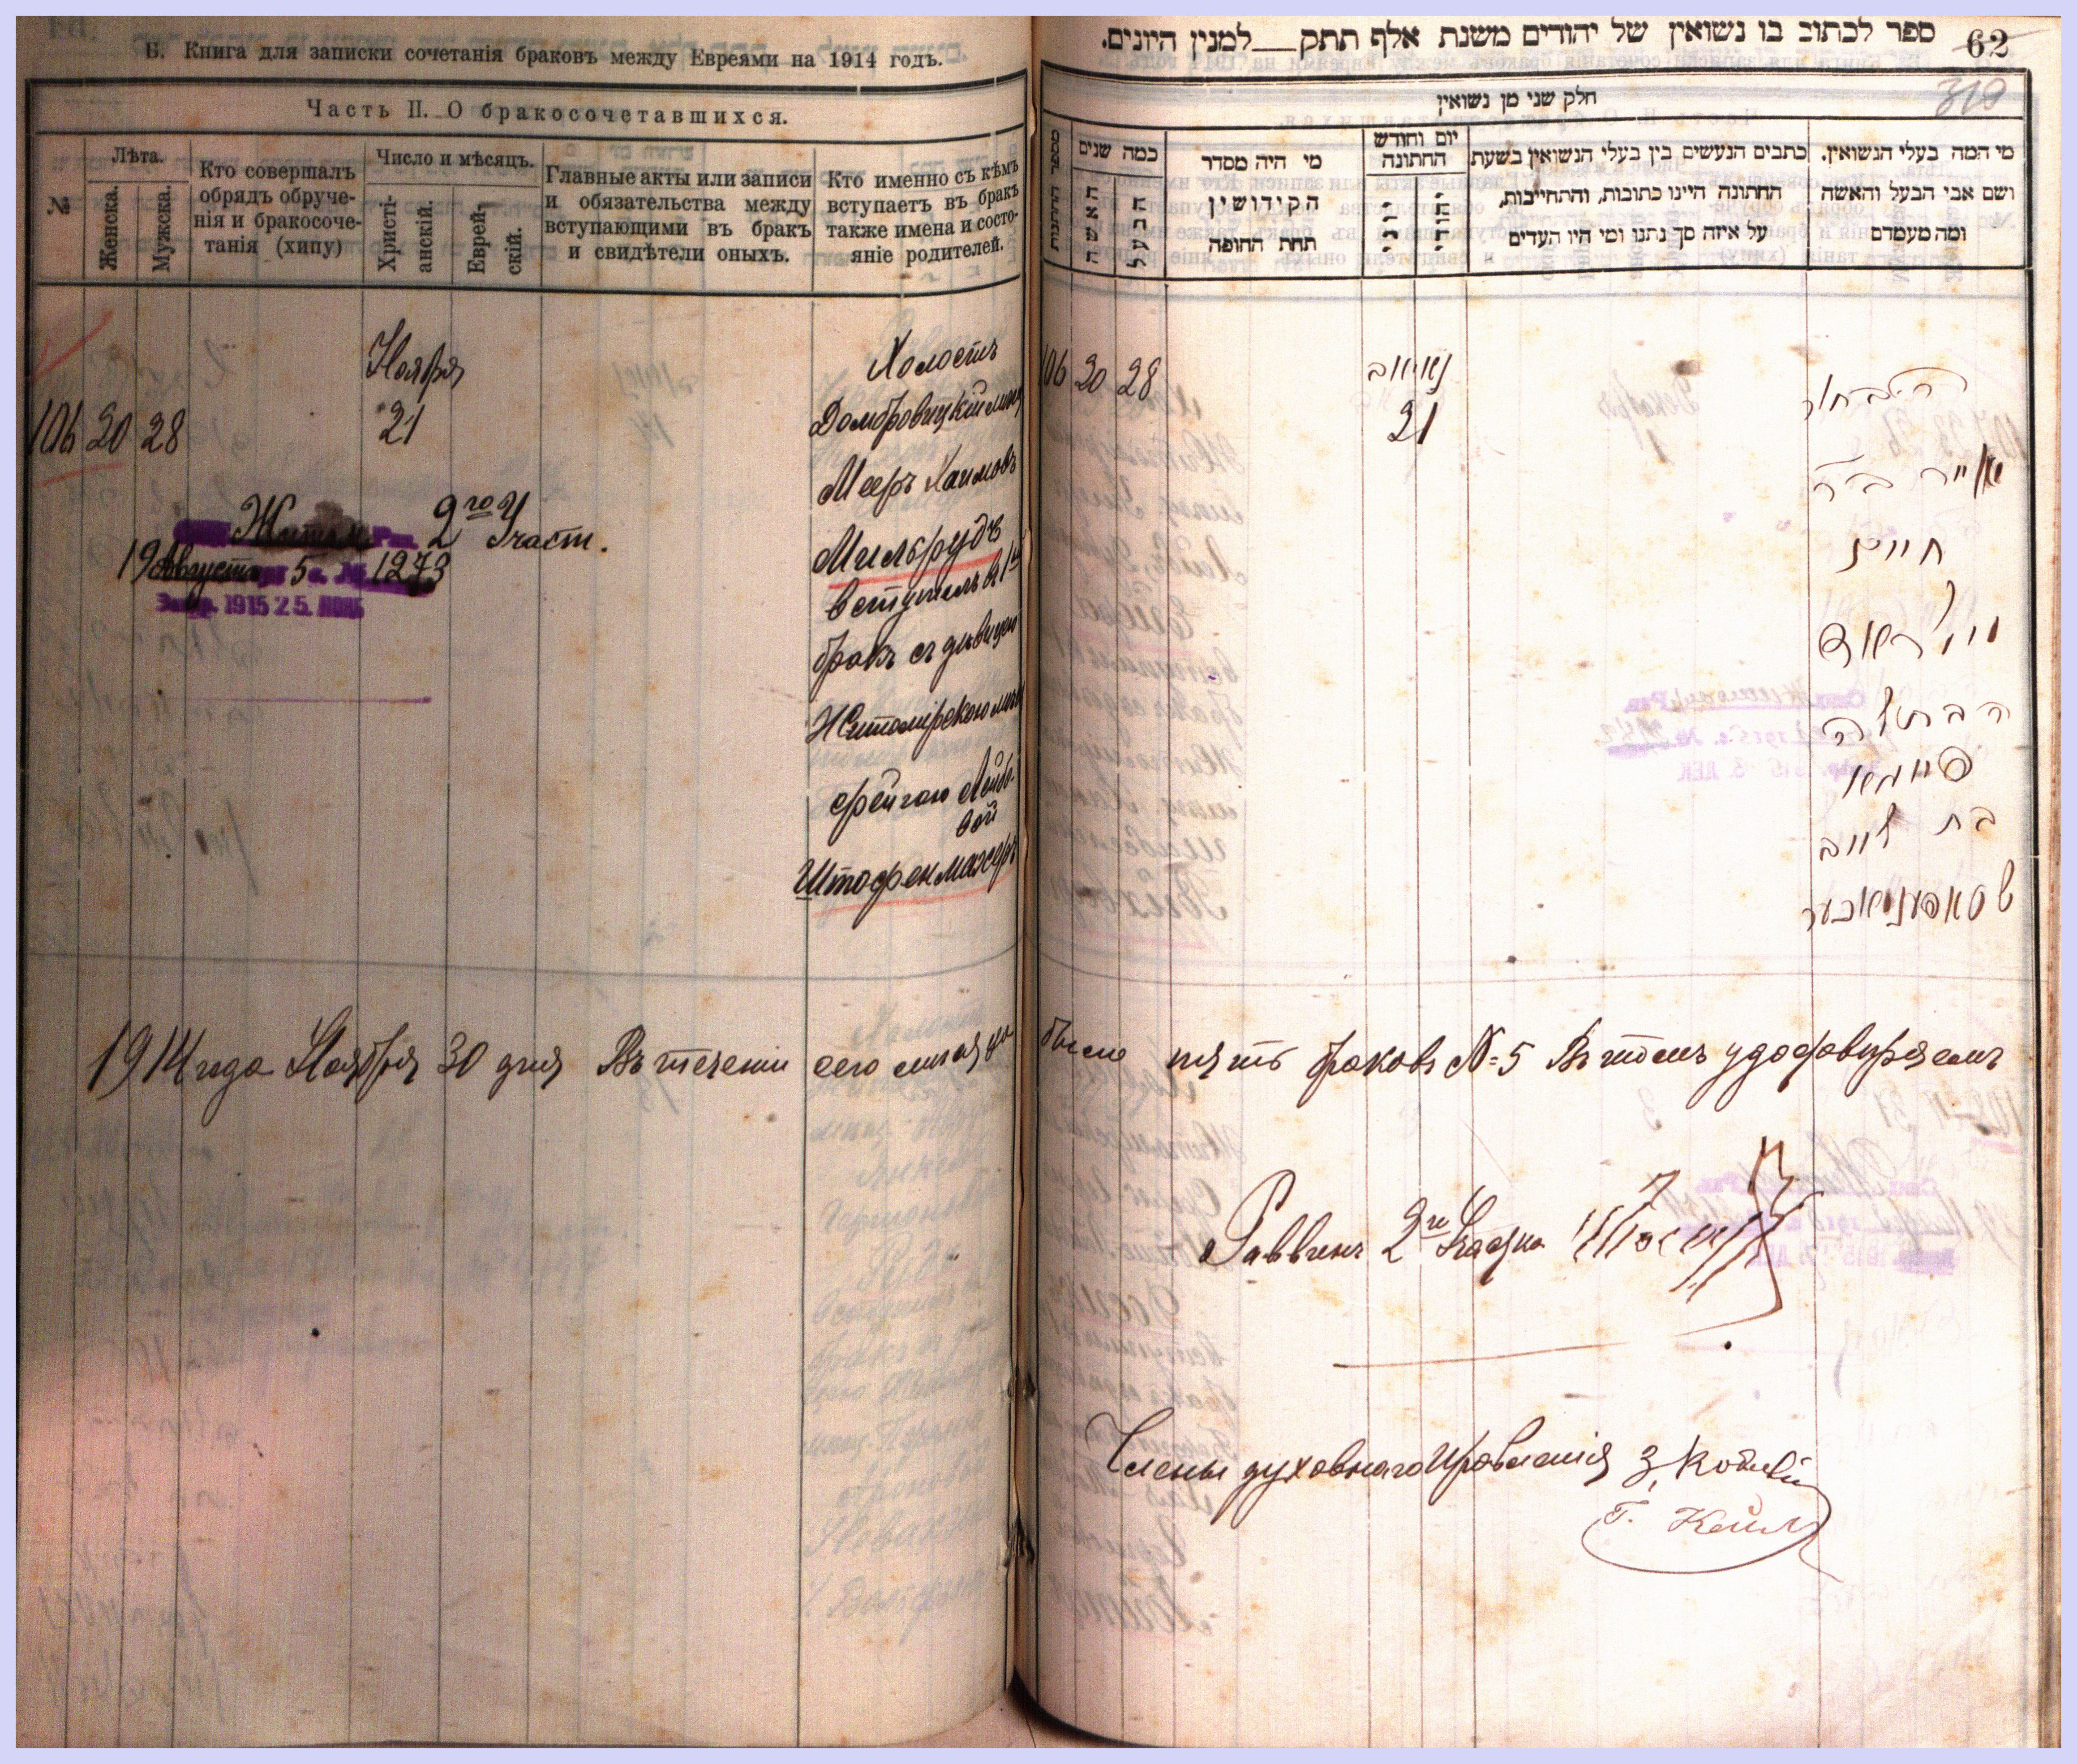 Б. Книга для записки сочетанія браковъ между Евреями на 1914 годъ.
Часть II. О бракосочетавшихся.
№
Лѣта.
Женска.
Мужска.
Кто совершалъ
обрядъ обруче-
нія и бракосоче-
танія (хипу)
Число и мѣсяцъ.
Христі-
анскій.
Еврей-
скій.
Главные акты или записи
и обязательства между
вступающими въ бракъ
и свидѣтели оныхъ.
Кто именно съ кѣмъ
вступаетъ въ бракъ
также имена и состо-
яніе родителей.
106 20 28
Ноября
21
Холостъ
Домбровицкій мѣщ
Мееръ Хаимовъ
Мильрудъ
вступилъ в 1й
бракъ съ дѣвицей
Житомірскою мѣщ
Фейгою Лейбо-
вой
Штофенмахеръ
2го Участ.
19 Августа 5 1273
1915 25. НОЯБ
ספר לכתוב בו נשואין של יהודים משנת אלף תתק__למנין היונים.
62
319
חלק שני מן נשואין
מספר החתונות
כמה שנים
האשה
הבעל
מי היה מסדר
הקידושין
תחת החופה
יום וחודש
החתונה
יהודי
כתבים הנעשים בין בעלי הנשואין בשעת
החתונה היינו כתובות, והתחייבות,
על איזה סך נתנו ומי היו העדים
מי המה בעלי הנשואין.
ושם אבי הבעל והאשה
ומה מעמדם
106 20 28
נאיאב
21
הבחור
מאיר ב״ר
חיים
מילראד
הבתולה
פייגא
בת לייב
שטאפענמאכער
1914 года Ноября 30 дня Въ теченіи сего мѣсяца было пять браковъ №=5 Въ томъ удостовѣряемъ
Раввинъ 2го Участка
Члены духовнаго Правленія З.
Г.